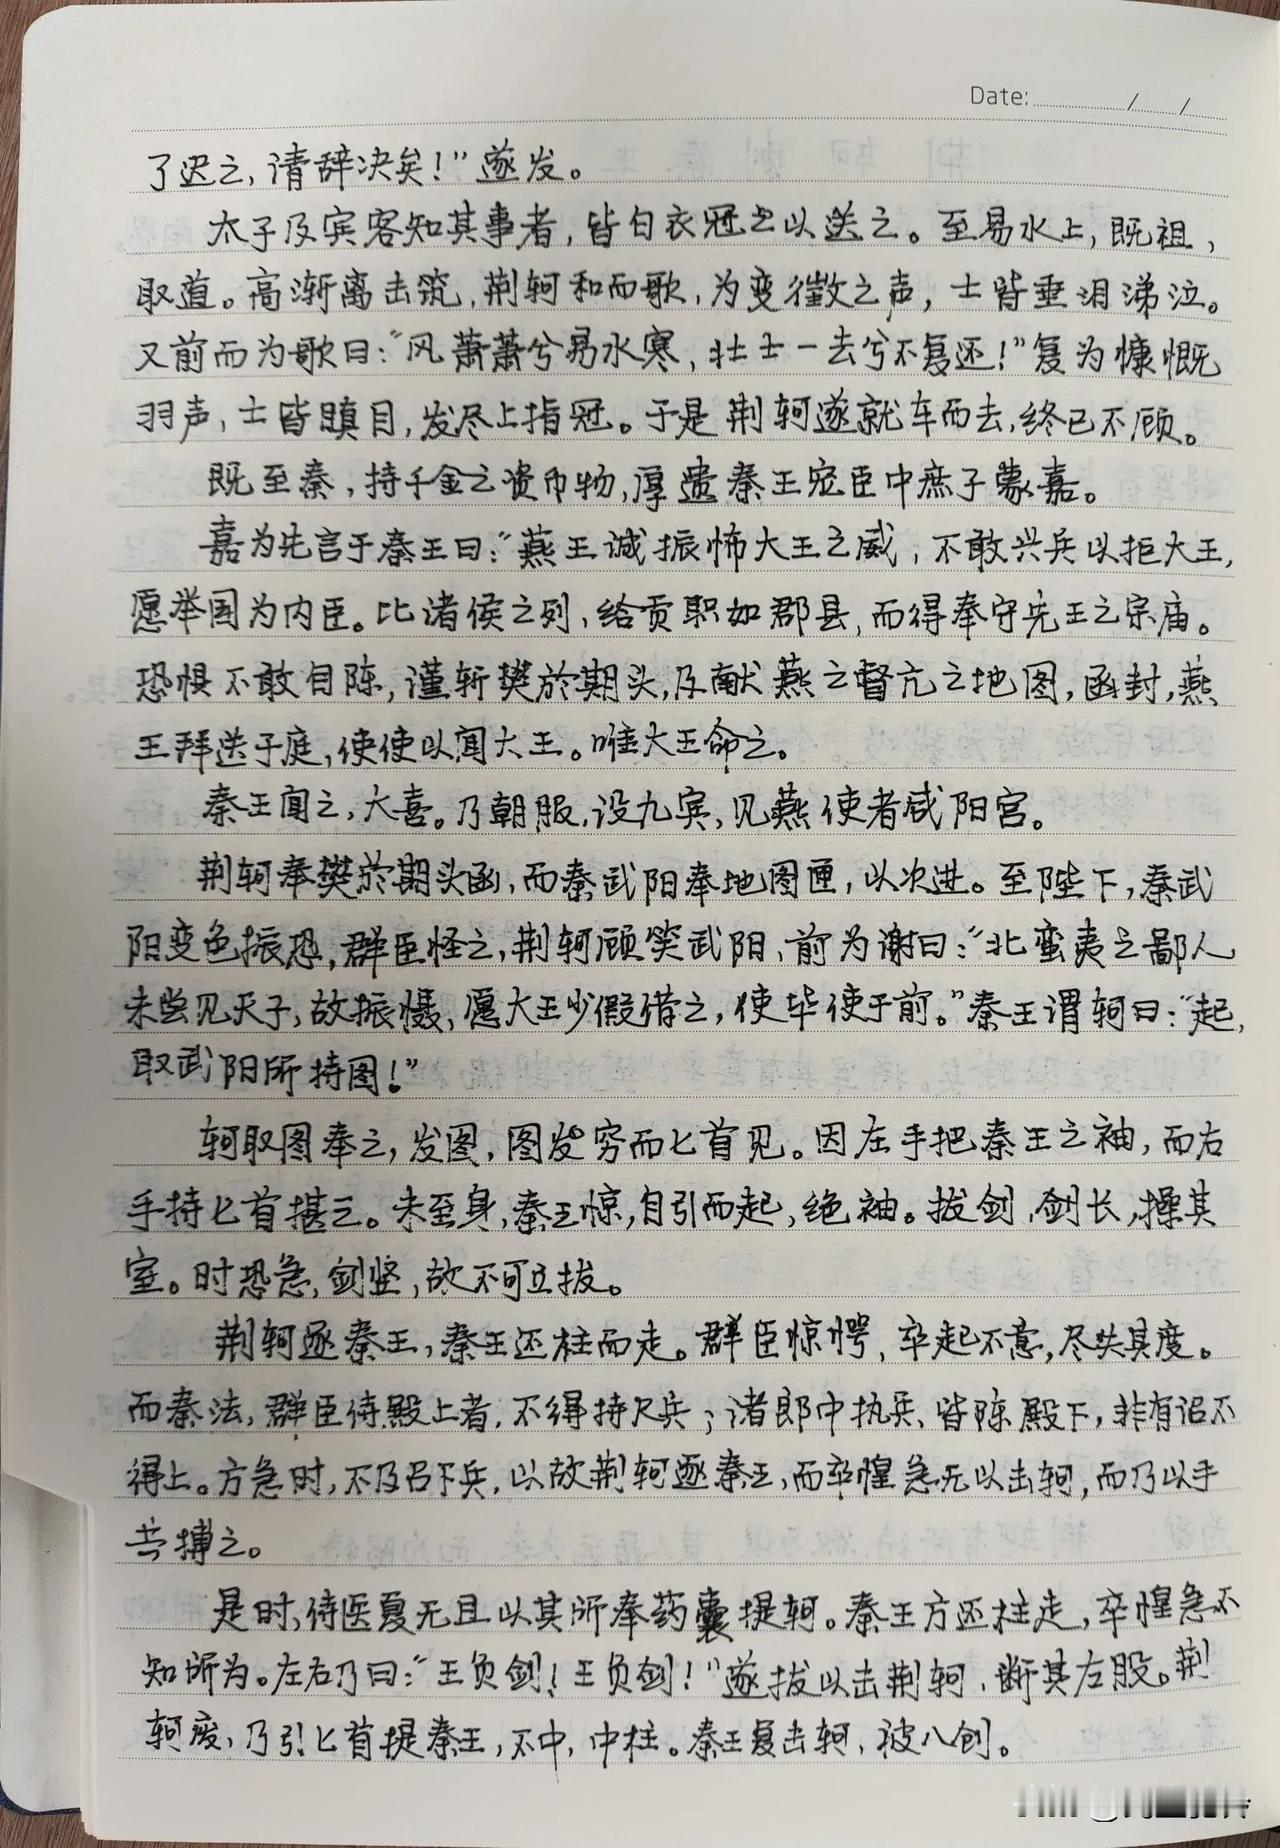 Date: / /
了迟之，请辞决矣！”遂发。
太子及宾客知其事者，皆白衣冠之以送之。至易水上，既祖，
取道。高渐离击筑，荆轲和而歌，为变徵之声，士皆垂泪涕泣。
又前而为歌曰：“风萧萧兮易水寒，壮士一去兮不复还！”复为慷慨
羽声，士皆瞋目，发尽上指冠。于是荆轲遂就车而去，终已不顾。
既至秦，持千金之资币物，厚遗秦王宠臣中庶子蒙嘉。
嘉为先言于秦王曰：“燕王诚振怖大王之威，不敢兴兵以拒大王，
愿举国为内臣。比诸侯之列，给贡职如郡县，而得奉守先王之宗庙。
恐惧不敢自陈，谨斩樊於期头，及献燕之督亢之地图，函封，燕
王拜送于庭，使使以闻大王。唯大王命之。
秦王闻之，大喜。乃朝服，设九宾，见燕使者咸阳宫。
荆轲奉樊於期头函，而秦武阳奉地图匣，以次进。至陛下，秦武
阳变色振恐，群臣怪之，荆轲顾笑武阳，前为谢曰：“北蛮夷之鄙人，
未尝见天子，故振慑，愿大王少假借之，使毕使于前。”秦王谓轲曰：“起，
取武阳所持图！”
轲取图奉之，发图，图穷而匕首见。因左手把秦王之袖，而右
手持匕首揕之。未至身，秦王惊，自引而起，绝袖。拔剑，剑长，操其
室。时恐急，剑坚，故不可立拔。
荆轲逐秦王，秦王还柱而走。群臣惊愕，卒起不意，尽失其度。
而秦法，群臣侍殿上者，不得持尺兵；诸郎中执兵，皆陈殿下，非有诏不
得上。方急时，不及召下兵，以故荆轲逐秦王，而卒惶急无以击轲，而乃以手
共搏之。
是时，侍医夏无且以其所奉药囊提轲。秦王方还柱走，卒惶急不
知所为。左右乃曰：“王负剑！王负剑！”遂拔以击荆轲，断其左股。荆
轲废，乃引匕首提秦王，不中，中柱。秦王复击轲，被八创。